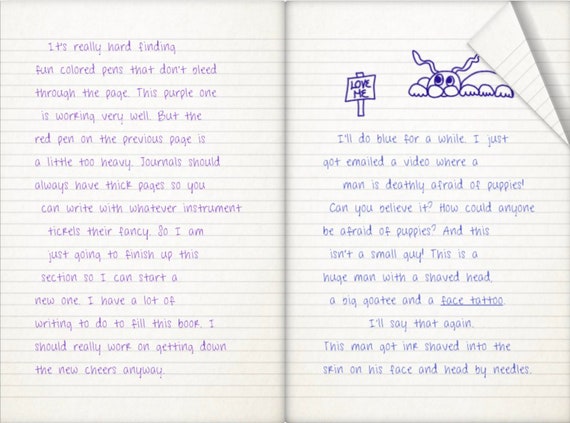 It's really hard finding
fun colored pens that don't bleed
through the page. This purple one
is working very well. But the
red pen on the previous page is
a little too heavy. Journals should
always have thick pages so you
can write with whatever instrument
tickels their fancy. So I am
just going to finish up this
section so I can start a
new one. I have a lot of
writing to do to fill this book. I
should really work on getting down
the new cheers anyway.
LOVE
ME
I'll do blue for a while. I just
got emailed a video where a
man is deathly afraid of puppies!
Can you believe it? How could anyone
be afraid of puppies? And this
isn't a small guy! This is a
huge man with a shaved head,
a big goatee and a face tattoo.
I'll say that again.
This man got ink shaved into the
skin on his face and head by needles.